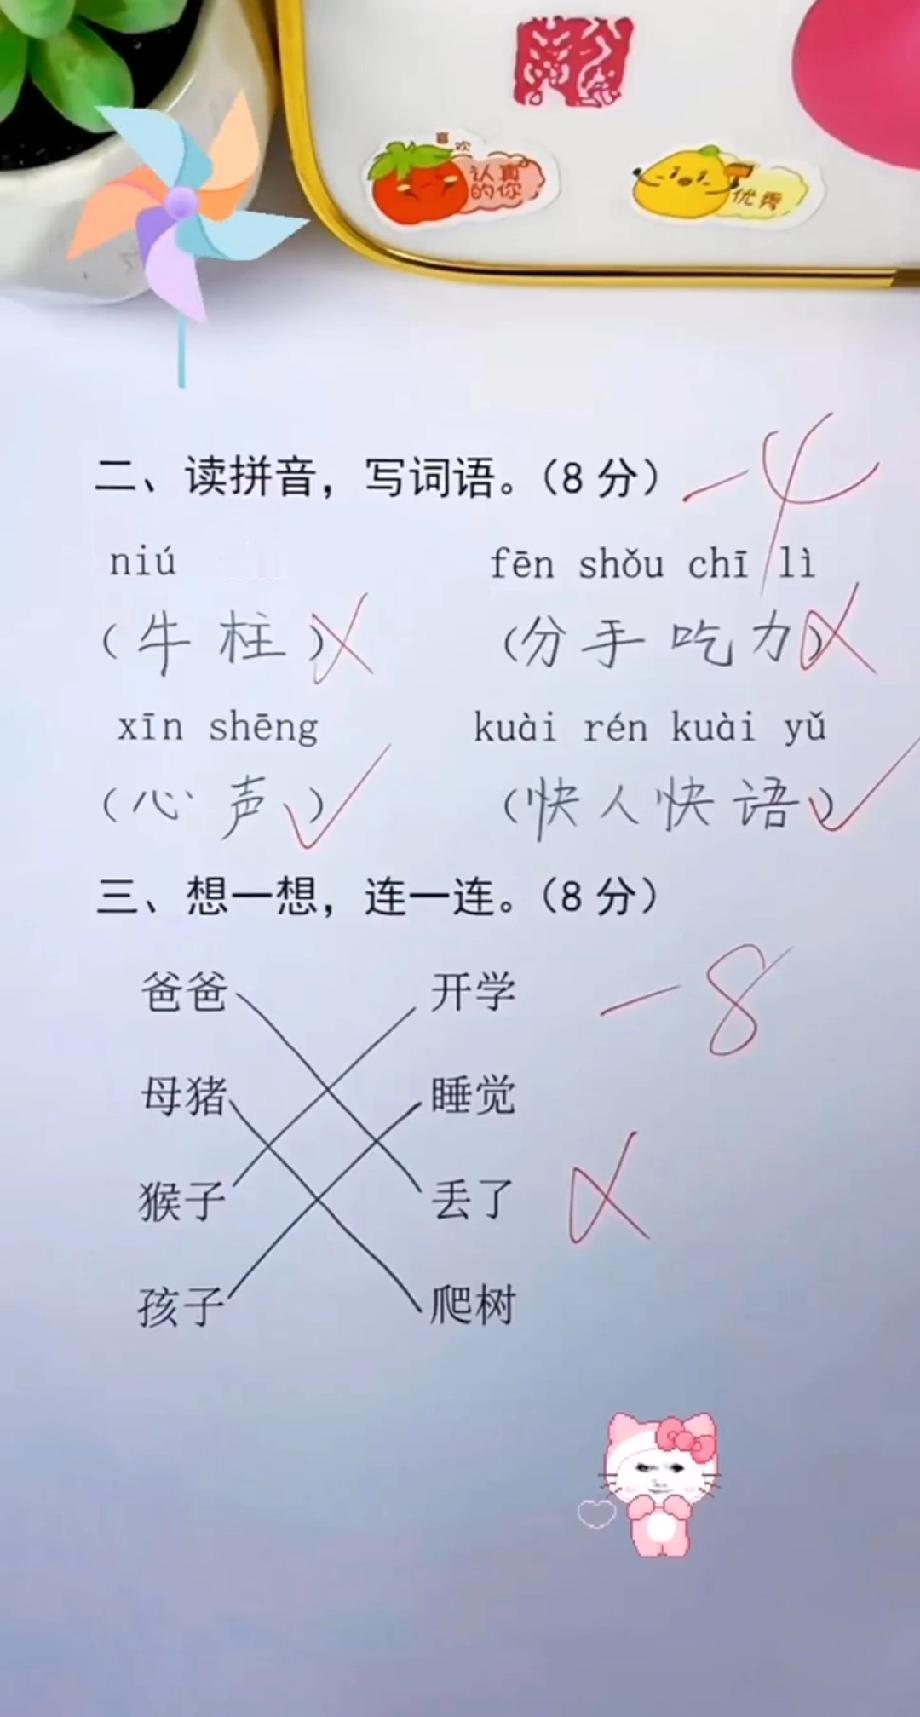 喜欢
认真
的你
优秀
二、读拼音，写词语。（8 分） -4
niú fēn shǒu chī lì
（牛 柱） （分 手 吃 力）
xīn shēng kuài rén kuài yǔ
（心 声） （快 人 快 语）
三、想一想，连一连。（8 分）
-8
爸爸 开学
母猪 睡觉
猴子 丢了
孩子 爬树